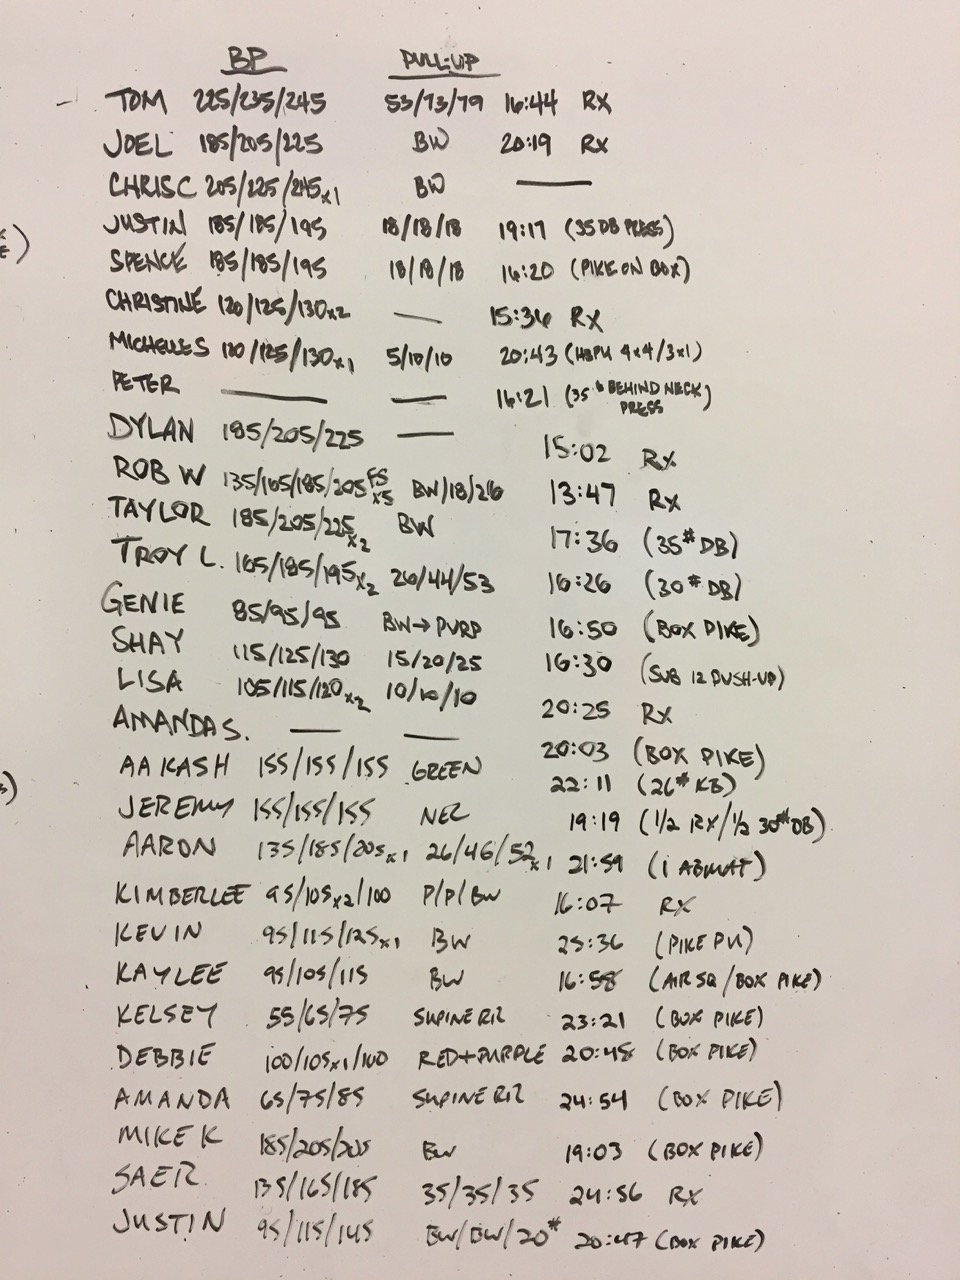 BP PULL-UP
TOM 225/235/245 53/73/79 16:44 RX
JOEL 185/205/225 BW 20:19 RX
CHRIS C 205/225/245x1 BW —
JUSTIN 185/185/195 18/18/18 19:17 (35 DB PRESS)
SPENCE 185/185/195 18/18/18 16:20 (PIKE ON BOX)
CHRISTINE 120/125/130x2 — 15:36 RX
MICHELLES 120/125/130x1 5/10/10 20:43 (HSPU 4x4/3x1)
PETER — — 16:21 (35# BEHIND NECK PRESS)
DYLAN 185/205/225 — 15:02 RX
ROB W 135/165/185/205 FS x5 BW/18/26 13:47 RX
TAYLOR 185/205/225x2 BW 17:36 (35# DB)
TROY L. 165/185/195x2 26/44/53 16:26 (30# DB)
GENIE 85/95/95 BW→PURP 16:50 (BOX PIKE)
SHAY 115/125/130 15/20/25 16:30 (SUB 12 PUSH-UP)
LISA 105/115/120x2 10/10/10 20:25 RX
AMANDA S. — — 20:03 (BOX PIKE)
AAKASH 155/155/155 GREEN 22:11 (26# KB)
JEREMY 155/155/155 NEG 19:19 (1/2 RX/1/2 30# DB)
AARON 135/185/205x1 26/46/52x1 21:59 (1 ABMAT)
KIMBERLEE 95/105x2/100 P/P/BW 16:07 RX
KEVIN 95/115/125x1 BW 25:36 (PIKE PU)
KAYLEE 95/105/115 BW 16:58 (AIR SQ/BOX PIKE)
KELSEY 55/65/75 SUPINE RR 23:21 (BOX PIKE)
DEBBIE 100/105x1/100 RED+PURPLE 20:48 (BOX PIKE)
AMANDA 65/75/85 SUPINE RR 24:54 (BOX PIKE)
MIKE K 185/205/205 BW 19:03 (BOX PIKE)
SAER 135/165/185 35/35/35 24:56 RX
JUSTIN 95/115/145 BW/BW/20# 20:47 (BOX PIKE)